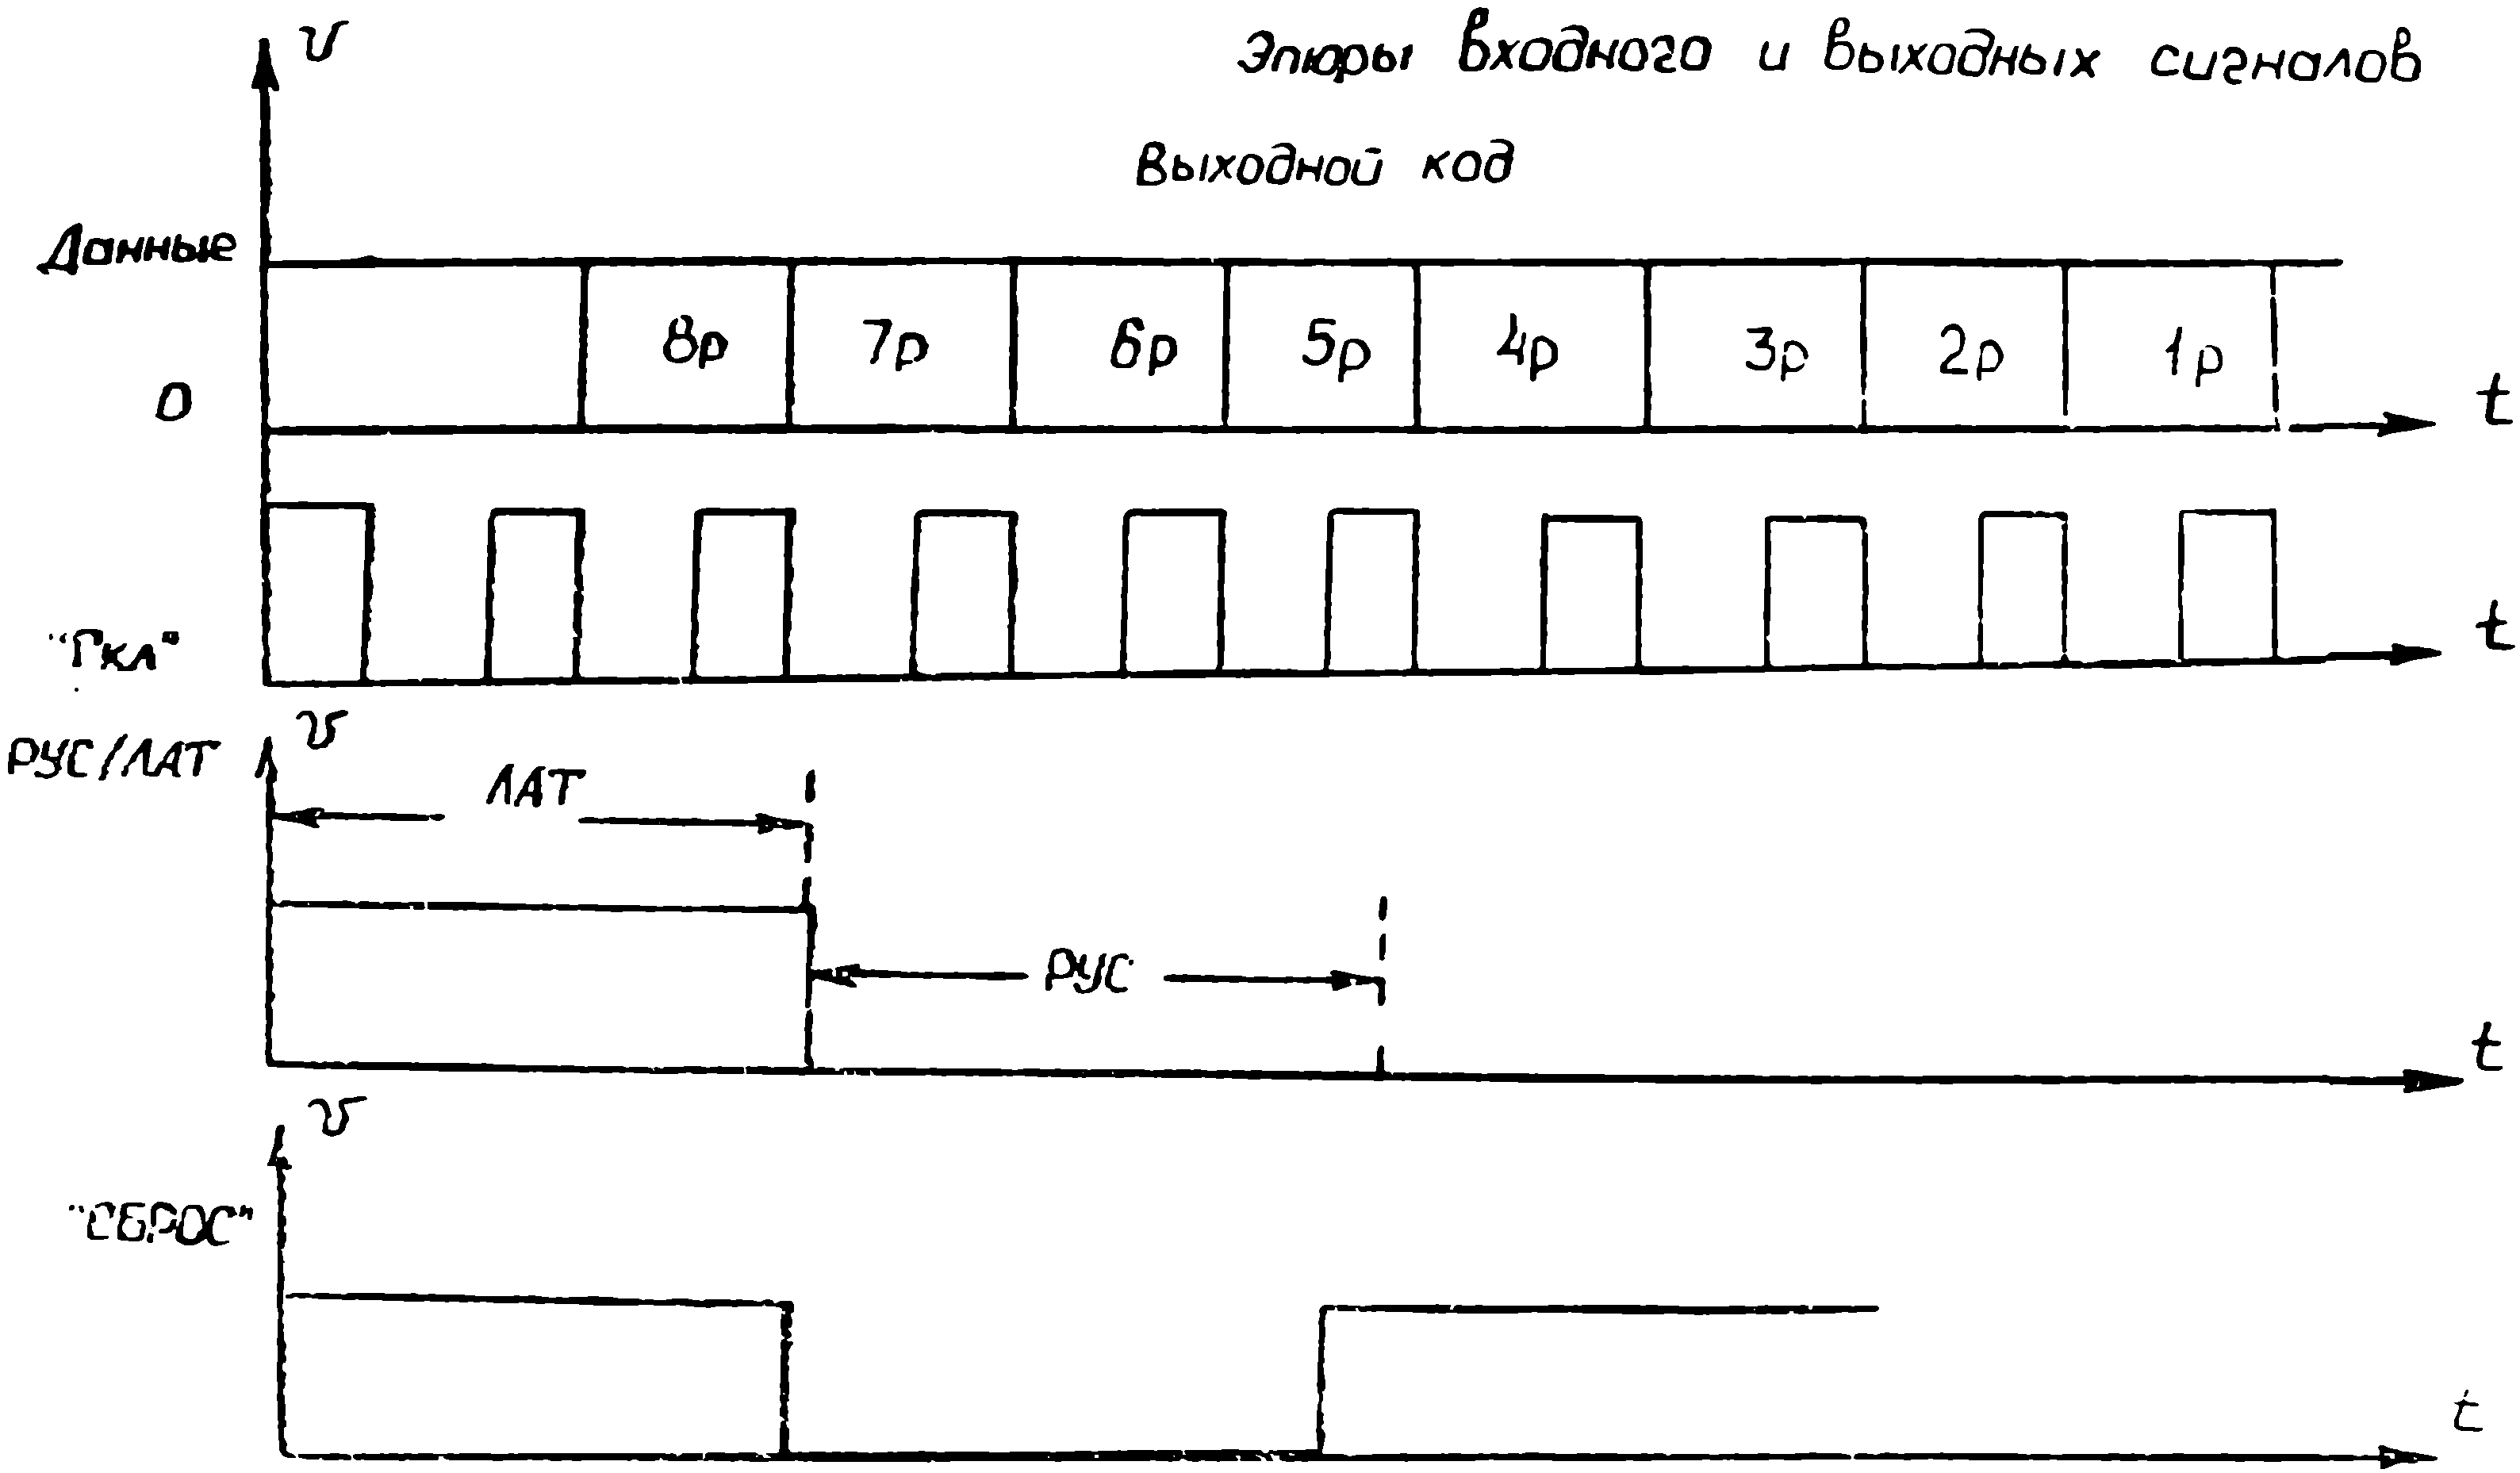 Эпюры входного и выходных сигналов
U
Выходной код
Данные
8р 7р 6р 5р 4р 3р 2р 1р
0
t
"Гкл"
t
РУС/ЛАТ
U
ЛАТ
РУС
t
U
"СБРОС"
t